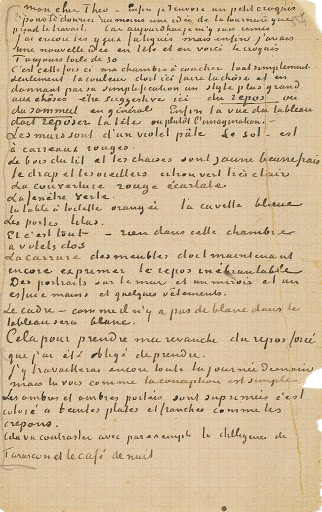 mon cher Theo – Enfin je t'envoie un petit croquis
pour te donner au moins une idée de la tournure que
prend le travail. Car aujourd'hui je m'y suis remis
J'ai encore les yeux fatigués mais enfin j'avais
une nouvelle idée en tête et en voici le croquis
Toujours toile de 30
C'est cette fois ci ma chambre à coucher tout simplement
seulement la couleur doit ici faire la chose et en
donnant par sa simplification un style plus grand
aux choses être suggestive ici du repos ou
du sommeil en général Enfin la vue du tableau
doit reposer la tête ou plutôt l'imagination. –
Les murs sont d'un violet pâle Le sol – est
à carreaux rouges.
Le bois du lit et les chaises sont jaune beurre frais
le drap et les oreillers citron vert très clair
La couverture rouge écarlate
La fenêtre verte.
la table à toilette orangée la cuvette bleue
Les portes lilas.
Et c'est tout – rien dans cette chambre
à volets clos
La carrure des meubles doit maintenant
encore exprimer le repos inébranlable
Des portraits sur le mur et un miroir et un
essuie mains et quelques vêtements.
Le cadre – comme il n'y a pas de blanc dans le
tableau sera blanc.
Cela pour prendre ma revanche du repos forcé
que j'ai été obligé de prendre.
J'y travaillerai encore toute la journée demain
mais tu vois comme la conception est simple.
Les ombres et ombres portées sont supprimées c'est
coloré à teintes plates et franches comme les
crepons.
Cela va contraster avec par exemple la diligence de
Tarascon et le café de nuit